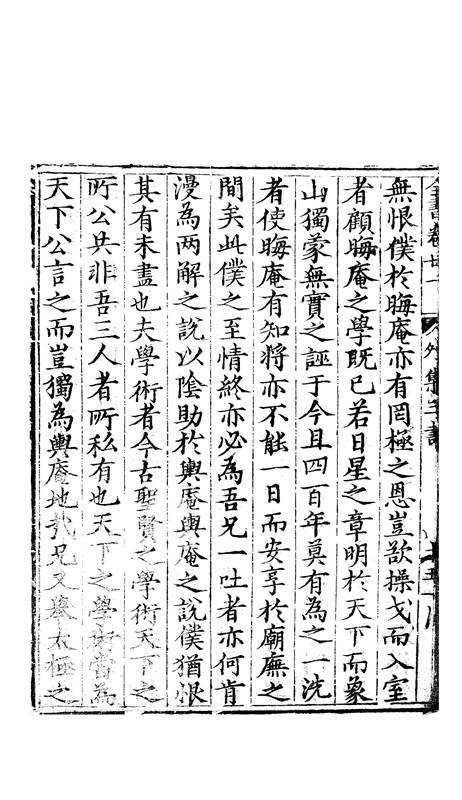 全書卷廿一　外集三書
無恨僕於晦庵亦有罔極之恩豈欲操戈而入室
者顧晦庵之學既已若日星之章明於天下而象
山獨蒙無實之誣于今且四百年莫有為之一洗
者使晦庵有知將亦不能一日而安享於廟廡之
間矣此僕之至情終亦必為吾兄一吐者亦何肯
漫為兩解之說以陰助於輿庵輿庵之說僕猶恨
其有未盡也夫學術者今古聖賢之學術天下之
所公共非吾三人者所私有也天下之學術當為
天下公言之而豈獨為輿庵地哉兄又舉太極之